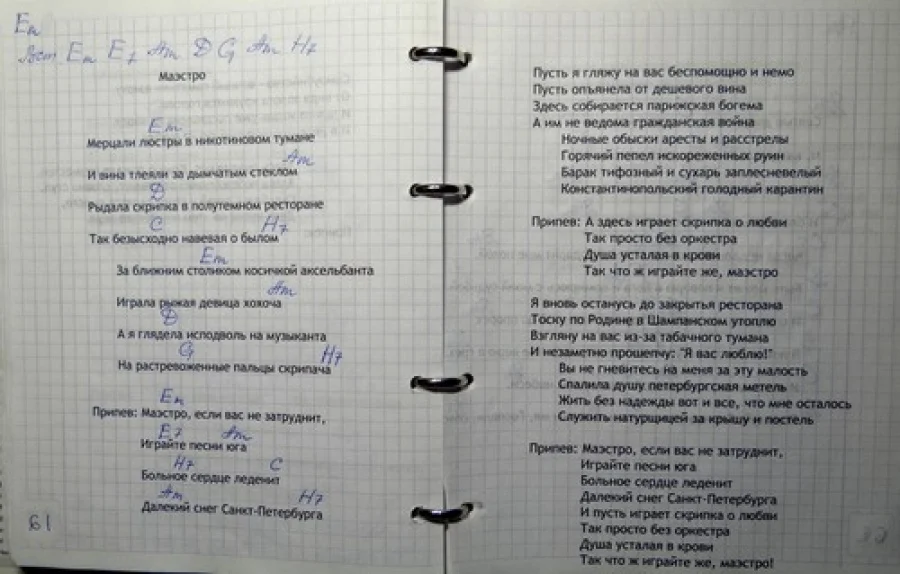 Em
Вст. Em E7 Am D G Am H7
Маэстро
Em
Мерцали люстры в никотиновом тумане
Am
И вина тлеяли за дымчатым стеклом
D
Рыдала скрипка в полутемном ресторане
C H7
Так безысходно навевая о былом
Em
За ближним столиком косичкой аксельбанта
Am
Играла рыжая девица хохоча
D
А я глядела исподволь на музыканта
G H7
На растревоженные пальцы скрипача
Em
Припев: Маэстро, если вас не затруднит,
E7 Am
Играйте песни юга
H7 C
Больное сердце леденит
Am H7
Далекий снег Санкт-Петербурга
61
Пусть я гляжу на вас беспомощно и немо
Пусть опьянела от дешевого вина
Здесь собирается парижская богема
А им не ведома гражданская война
Ночные обыски аресты и расстрелы
Горячий пепел искореженных руин
Барак тифозный и сухарь заплесневелый
Константинопольский голодный карантин
Припев: А здесь играет скрипка о любви
Так просто без оркестра
Душа усталая в крови
Так что ж играйте же, маэстро
Я вновь останусь до закрытья ресторана
Тоску по Родине в Шампанском утоплю
Взгляну на вас из-за табачного тумана
И незаметно прошепчу: "Я вас люблю!"
Вы не гневитесь на меня за эту малость
Спалила душу петербургская метель
Жить без надежды вот и все, что мне осталось
Служить натурщицей за крышу и постель
Припев: Маэстро, если вас не затруднит,
Играйте песни юга
Больное сердце леденит
Далекий снег Санкт-Петербурга
И пусть играет скрипка о любви
Так просто без оркестра
Душа усталая в крови
Так что ж играйте же, маэстро!